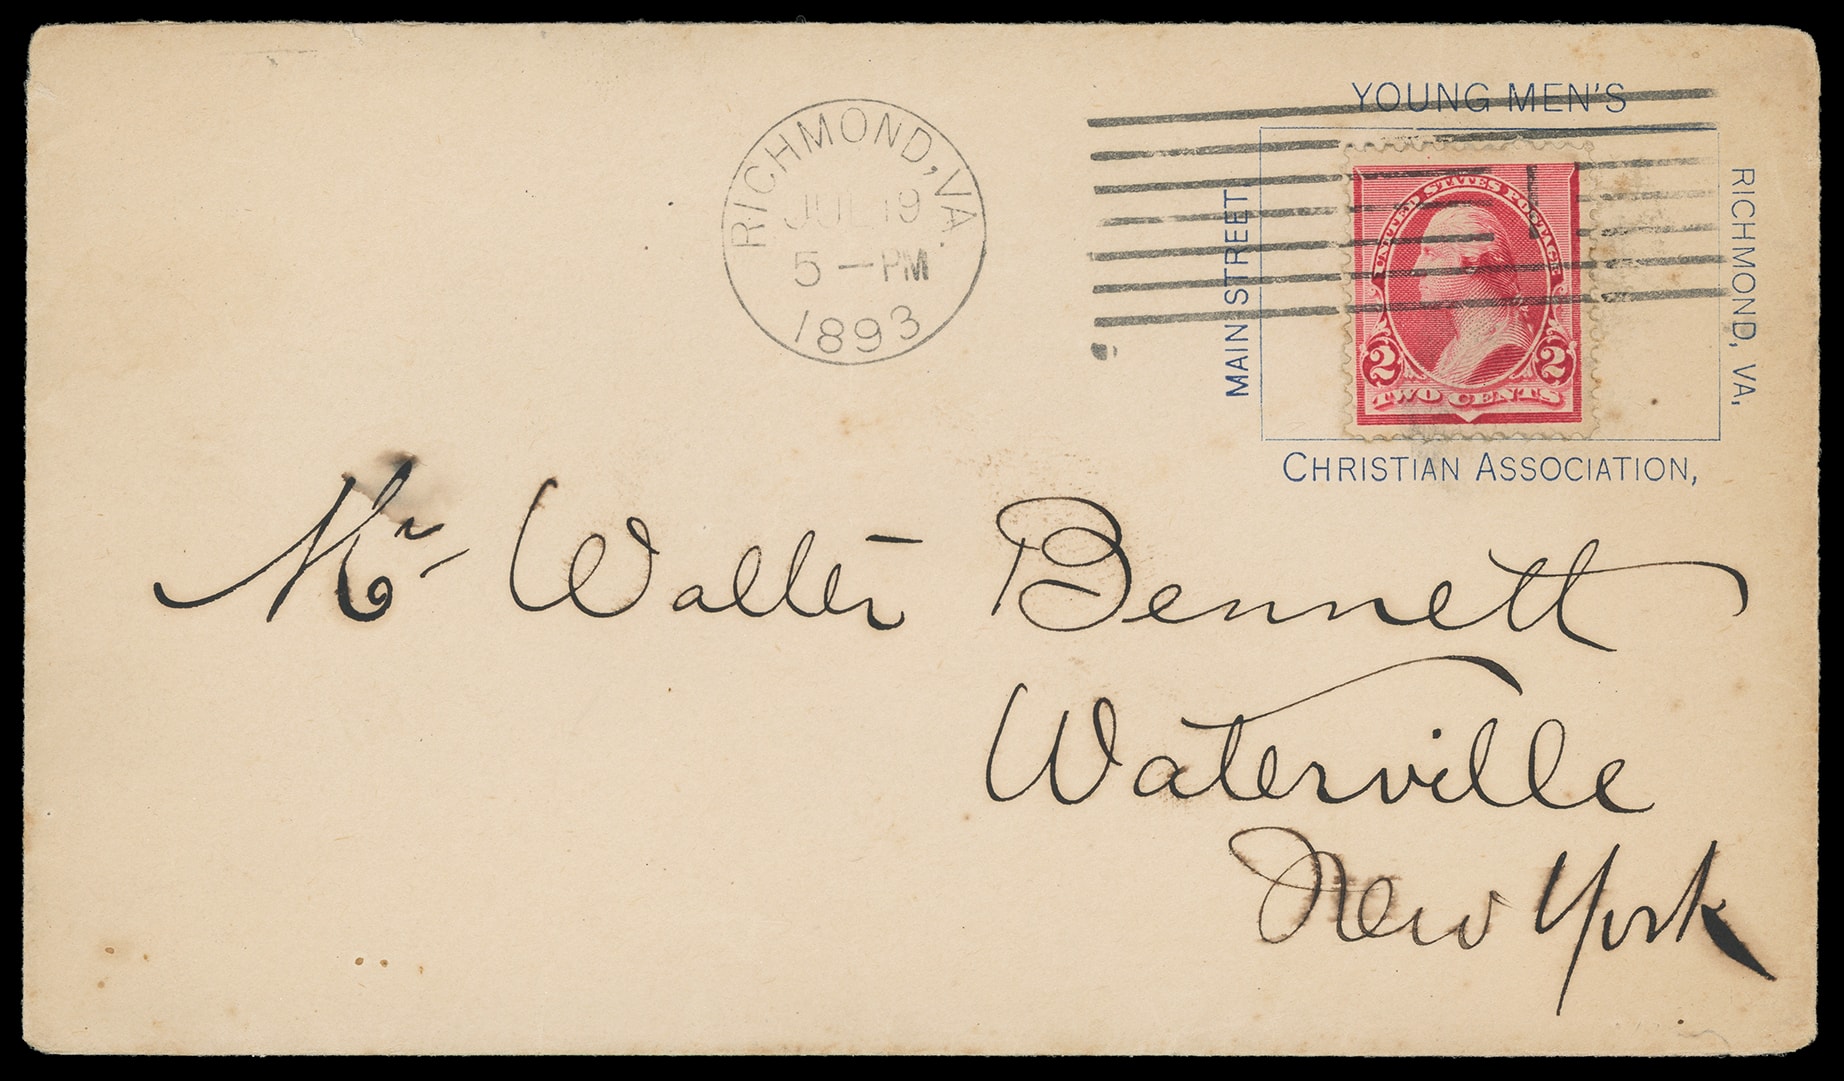 YOUNG MEN'S
MAIN STREET,
RICHMOND, VA.
CHRISTIAN ASSOCIATION,
RICHMOND, VA.
JUL 19
5 - PM
1893
UNITED STATES POSTAGE
2 2
TWO CENTS
Mr Walter Bennett
Waterville
New York